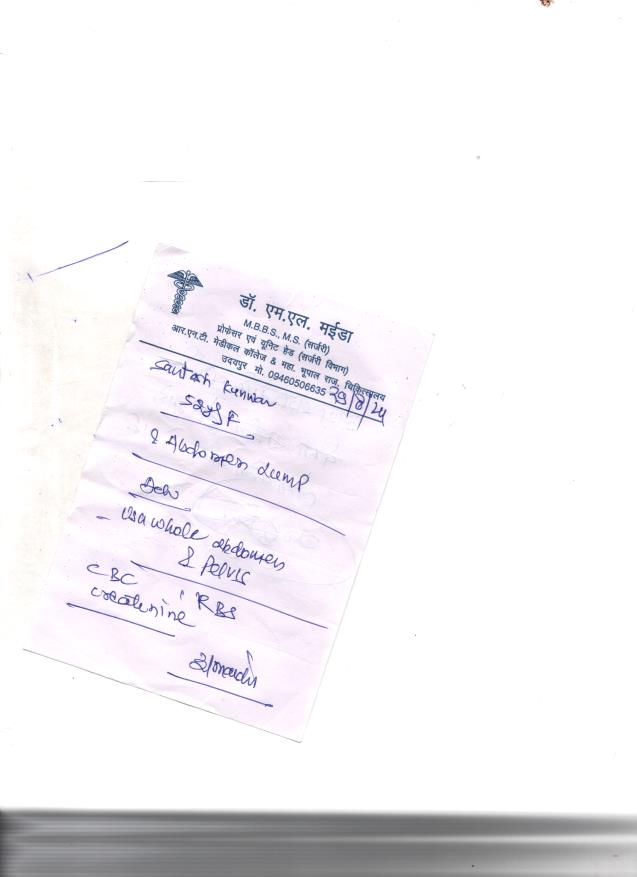 डॉ. एम.एल. मईडा
M.B.B.S., M.S. (सर्जरी)
प्रोफेसर एवं यूनिट हेड (सर्जरी विभाग)
आर.एन.टी. मेडीकल कॉलेज & महा. भूपाल राज. चिकित्सालय
उदयपुर मो. 09460506635
29/8/24
Santosh Kunwar
52y/F
? Abdomen Lump
Adv
- USG whole abdomen
& Pelvis
CBC, RBS
creatinine